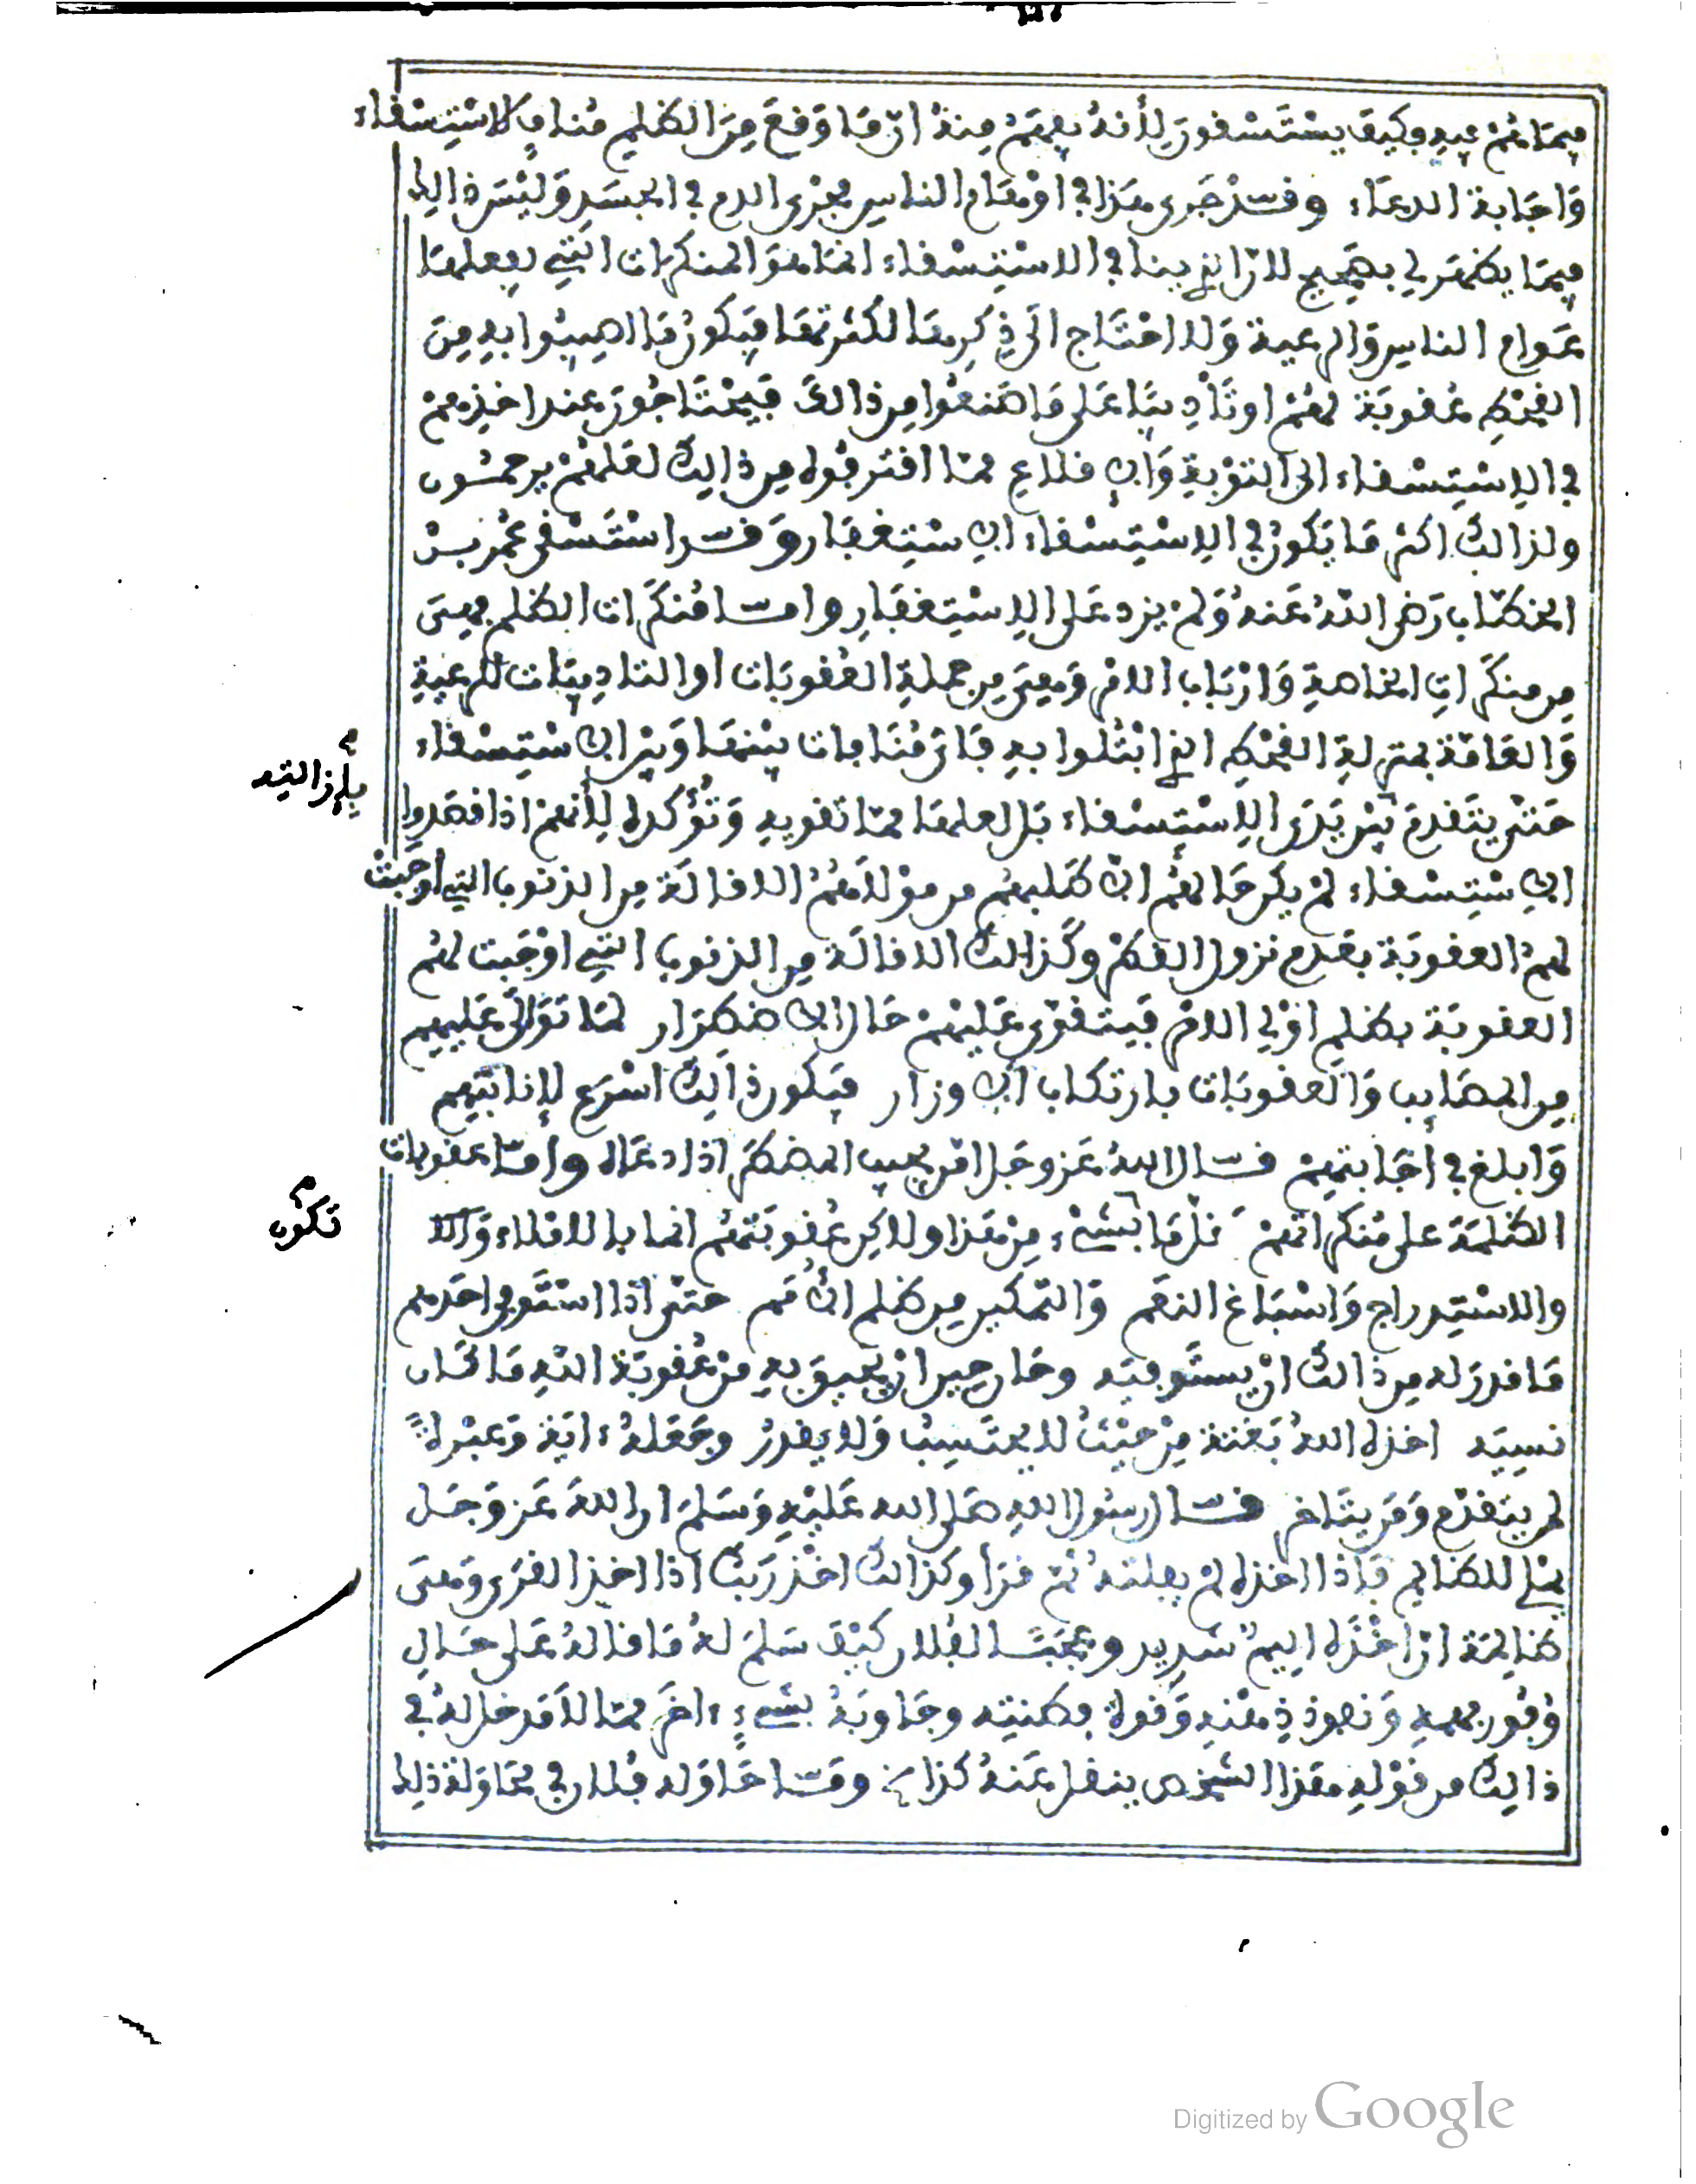 فيما هم فيه وكيف يستسقون لأنه يفهم منه ان ما وقع من الظلم مناف للاستسقاء
وَاجَابة الدعاء وقد جَرى هذا في اوهام الناس مجرى الدم في الجسَد وَليْسَ ذالك
فيما يظهر لي بصحيح لان الذي ينافي الاستسقاء انما هوَ المنكرات التي يفعلها
عَوام الناس وَالرعية وَلا احتاج الى ذكرها لكثرتها فيكون ما اصيبُوا به مِن
القحْط عُقوبَة لهُم اوتَأديبًا عَلى مَا صَنعُوا من ذالكَ فيحْتَاجُون عند اخذهم
في الاستسقاء الى التوْبة وَالاقلاع مما اقترفوه من ذالك لعَلهُم يرحمُون
ولذالك اكثر مَا يَكون في الاستسقاء الاستغفار وقد استَسْقى عُمر بن
الخطاب رَضي اللهُ عَنهُ وَلم يزد عَلى الاستغفار وامّا مُنكَرات الظلم فهيَ
من منكَرات الخاصة وَارْبَاب الامر وَهيَ من جملة العُقوبَات اوالتاديبَات للرعية
وَالعَامّة بمنزلة القحْط الذي ابْتُلوا به فَلا مُنَافات بيْنهَا وَبيْن الاستسقاء
حَتى يتَقدم بيْن يَدَي الاستسقاء بَل لعلها مما تقويه وَتُؤكده لأنهم اذا قصَدوا
الاستسقاء لم يكن حَاملهُم الا طَلبهم من موْلاهُمُ الاقالَة من الذنوب التي اوجَبتْ
لهمُ العقوبَة بعَدم نزول القطْر وكَذالك الاقالَة من الذنوب التي اوْجَبت لهُم
العقوبَة بظلم اوْلي الامْر فيتقوّى عَليْهمْ حَال الاضطرَار لمَا تَوَالى عَليهم
من المصَايب وَالعقوبَات بارتكاب الاوزار فيكون ذالك اسْرَع لإنابَتهم
وَابلغ في اجَابتهمْ قال اللهُ عَز وجَل امّن يجيب المضطرّ اذا دعَاه وامّا عقوبات
الظلمَة على مُنكراتهمْ فلمَا بشيْء منْ هَذا ولاكن عُقوبَتهُم انما بالاملاء وَالا
والاستدراج وَاسْبَاغ النعَم وَالتمكين من ظلم الأمَم حتى اذا استَوفى احَدهم
مَا قدرَ له من ذالك انْ يستَوفيَه وحَان حين انْ يحيقَ به منْ عُقوبَة الله مَا كَان
نسيَه اخذه اللهُ بَغتة منْ حيْثُ لا يحتَسبُ وَلا يقدرُ وجَعَلهُ ءاية وَعبْرةً
لمن يتَقدّم وَمَن يتَأخر قال رسُول الله صَلى الله عَليْه وَسَلمَ ان اللهَ عَز وَجَل
يمْلي للظالم فَإذا اخذه لم يفلتهُ ثم قرَأ وكَذالك اخذُ رَبك اذا اخذ القرَى وَهيَ
ظالمَة انّ اخْذَه اليمٌ شَديد وعجَبًا لفُلان كيْفَ سَلمَ لهُ مَا قالهُ عَلى حَال
وُفُور فهمه وَنفوذ ذهْنه وَقوة فطنته وجَاوبَهُ بشيْءٍ ءاخَر مما لا مَدخل لهُ في
ذالك من قوْله هَذا الشخص ينقل عَنهُ كذا وَمَا حَاوَله فُلان في محَاوَلة ذلك
بإزالته
تكون
Digitized by Google